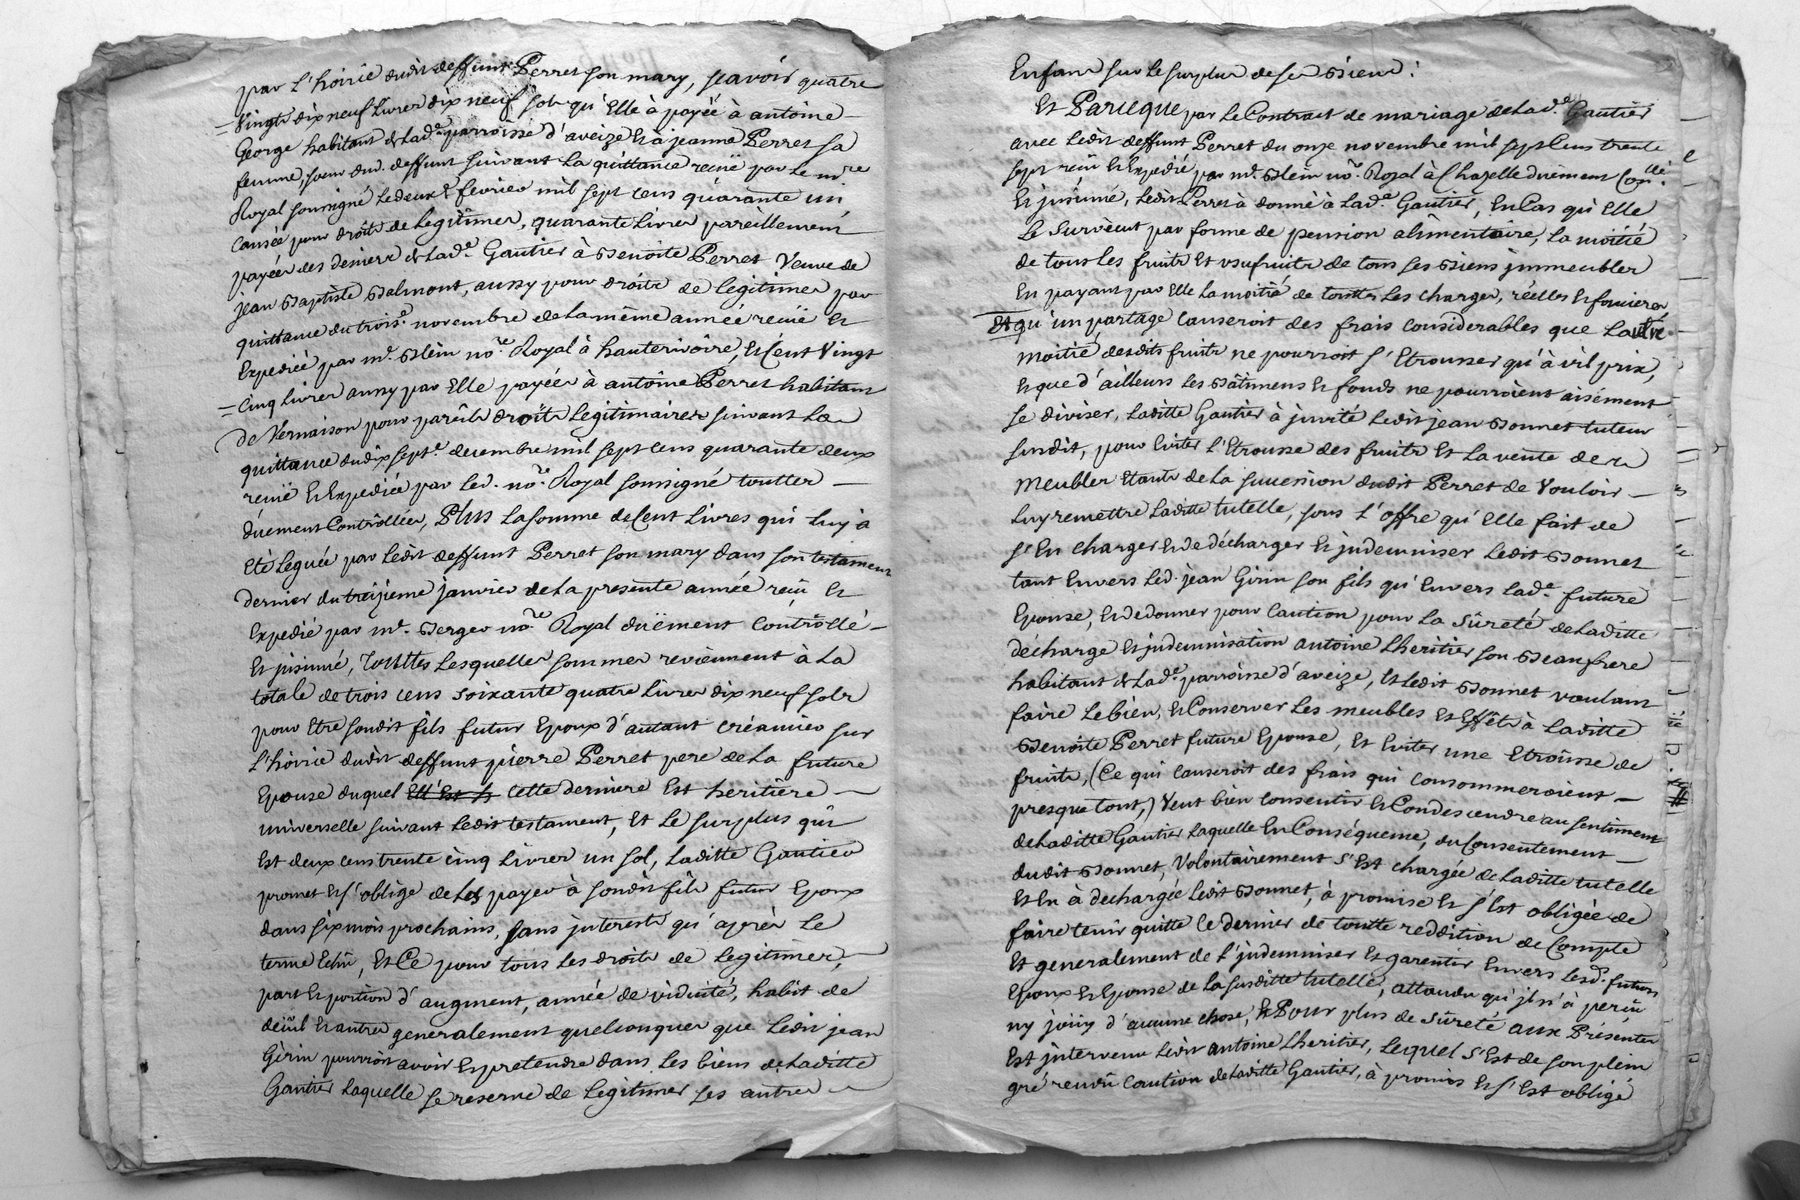 par L'hoirie dudit deffunt Perret son mary, sçavoir quatre
= Vingts dix neuf Livres dix neuf sols qu'Elle à payée à antoine
George habitant de Lad.e parroisse d'aveize Et à jeanne Perret sa
femme, soeur dud. deffunt suivant La quittance reçuë par Le n.re
Royal soussigné Le deux.e fevrier mil sept cens quarante un
Causée pour droits de Legitimes, quarante Livres pareillement
payées des deniers de Lad.e Gautier à Benoite Perret Veuve de
jean Baptiste Balmont, aussy pour droits de legitimes par
quittance du trois.e novembre de La même année reçuë Et
Expediée par m.e Blein no.re Royal à hauterivoire, Et Cent Vingt
= Cinq Livres aussy par Elle payées à antoine Perret habitant
de Vernaison pour pareils droits Legitimaires suivant La
quittance du dix sept.e decembre mil sept cens quarante deux
reçuë Et Expediée par led. no.re Royal soussigné touttes
düement Contrôllées, Plus La somme de Cent Livres qui Luy a
Eté Leguée par Ledit deffunt Perret son mary dans son testament
dernier du treizieme janvier de La presente année reçu Et
Expedié par m.e Berger no.re Royal düement Contrôllé
Et jnsinué, Touttes Lesquelles sommes reviennent à La
totale de trois cens soixante quatre Livres dix neuf sols
pour Etre sondit fils futur Epoux d'autant créancier sur
L'hoirie dudit deffunt pierre Perret pere de La future
Epouse duquel cette derniere Est heritiere
universelle suivant Ledit testament, Et Le surplus qui
Est deux cens trente cinq Livres un sol, Laditte Gautier
promet Et s'oblige de Les payer à sondit fils futur Epoux
dans six mois prochains, sans jnterests qu'après Le
terme Echû, Et Ce pour tous Les droits de Legitimes,
part Et portion d'augment, année de viduité, habit de
deüil Et autres generalement quelconques que Ledit jean
Girin pourroit avoir Et pretendre dans Les biens de Laditte
Gautier Laquelle se reserve de Legitimer Ses autres
Enfans sur Le surplus de ses Biens;
Et Parceque par Le Contract de mariage de Lad.e Gautier
avec Ledit deffunt Perret du onze novembre mil sept Cens trente
sept reçû Et Expedié par m.e Blein no.re Royal à Chazelle düement Con.llé
Et jnsinué, Ledit Perret à donné à Lad.e Gautier, En Cas qu'Elle
Le Survécut par forme de pension alimentaire, La moitié
de tous Les fruits Et usufruits de tous ses Biens jmmeubles
En payant par Elle La moitié de touttes Les charges, réelles Et foncieres
Et qu'un partage Causeroit des frais considerables que L'autre
moitié desdits fruits ne pourroit s'Etrousser qu'à vil prix,
Et que d'ailleurs Les Bâtimens Et fonds ne pourroient aisément
se diviser, Laditte Gautier à jnvité Ledit jean Bonnet tuteur
susdit, pour Eviter L'Etrousse des fruits Et La vente des
Meubles Etants de La succession dudit Perret de Vouloir
Luy remettre Laditte tutelle, sous L'offre qu'Elle fait de
s'En charger Et de décharger Et jndemniser Ledit Bonnet
tant Envers Led. jean Girin son fils qu'Envers Lad.e future
Epouse, Et de donner pour Caution pour La sûreté de Laditte
décharge Et jndemnisation antoine Lheritier son Beaufrere
habitant de Lad.e parroisse d'aveize, Et Ledit Bonnet voulant
faire Le bien, Et Conserver Les meubles Et Effets à Laditte
Benoite Perret future Epouse, Et Eviter une Etrousse de
fruits, (Ce qui Causeroit des frais qui consommeroient
presque tout,) Veut bien Consentir Et Condescendre au sentiment
de Laditte Gautier Laquelle En Conséquence, du Consentement
dudit Bonnet, Volontairement s'Est chargée de Laditte tutelle
Et En à dechargée Ledit Bonnet, à promise Et s'Est obligée de
faire tenir quitte Ce dernier de toutte reddition de Compte
Et generalement de L'jndemniser Et garentir Envers Lesd. futurs
Epoux Et Epouse de La susditte tutelle, attendu qu'jl n'à perçu
ny jouy d'aucune chose, Et Pour plus de sûreté aux Présentes
Est jntervenu Ledit antoine Lheritier, Lequel s'Est de son plein
gré rendû Caution de Laditte Gautier, à promis Et s'Est obligé